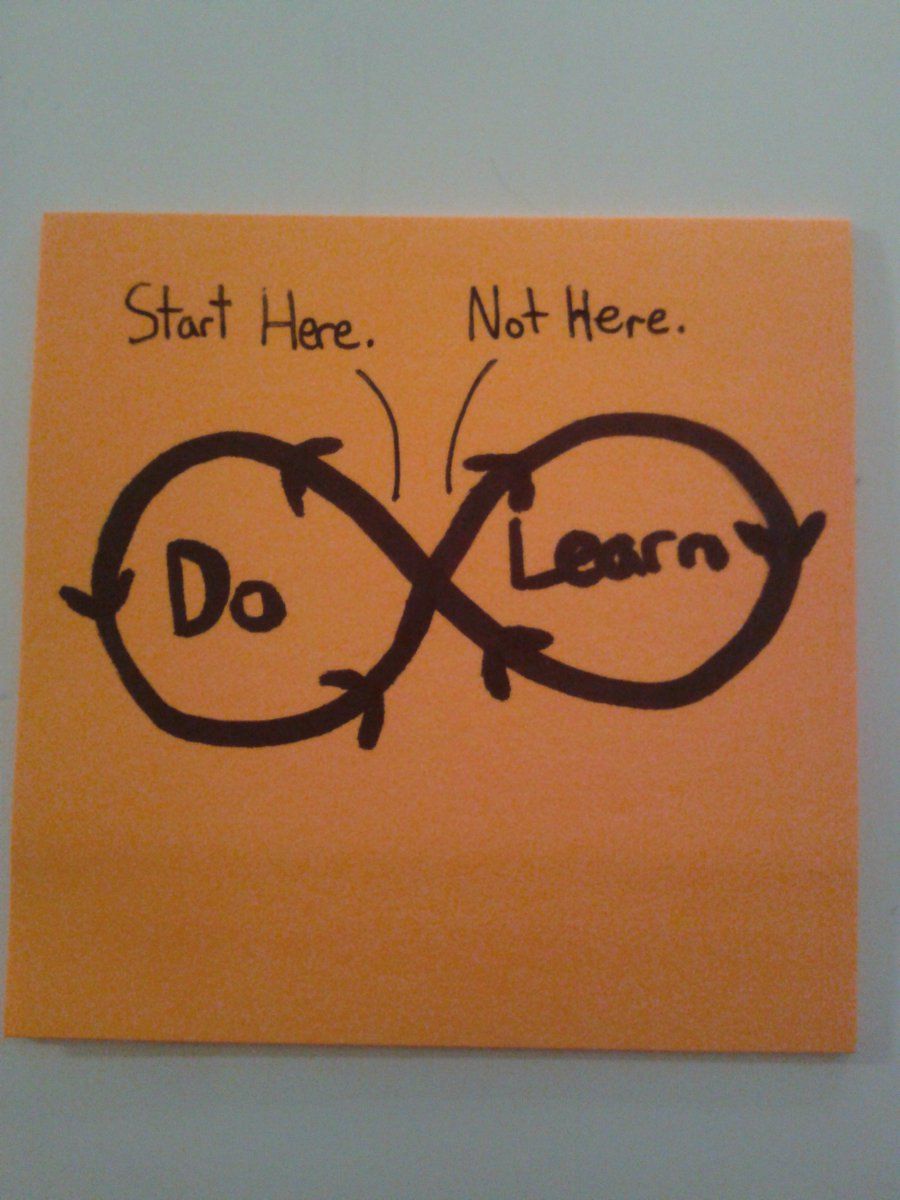 Start Here.
Not Here.
Do
Learn